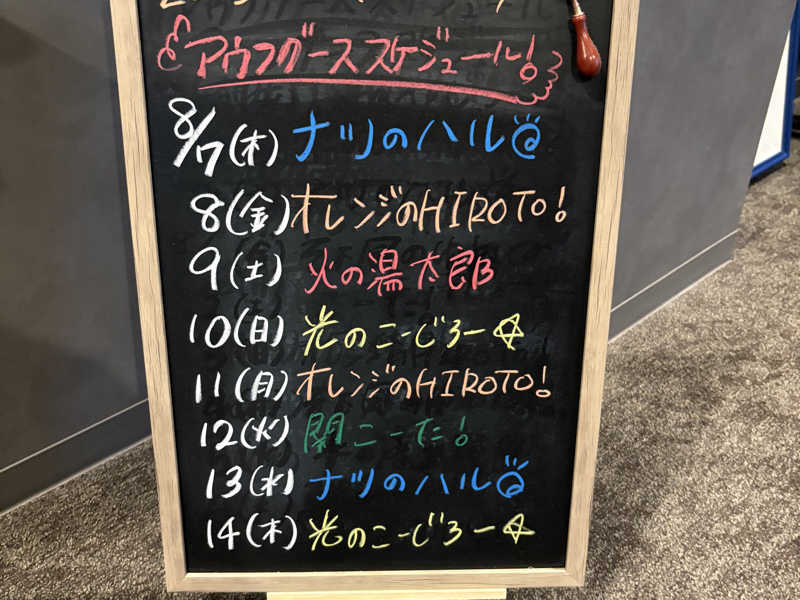 アウフグーススケジュール!
8/7(木) ナツのハル
8(金) オレンジのHIROTO!
9(土) 火の湯太郎
10(日) 光のこーじろー☆
11(月) オレンジのHIROTO!
12(火) 関こーた!
13(水) ナツのハル
14(木) 光のこーじろー☆